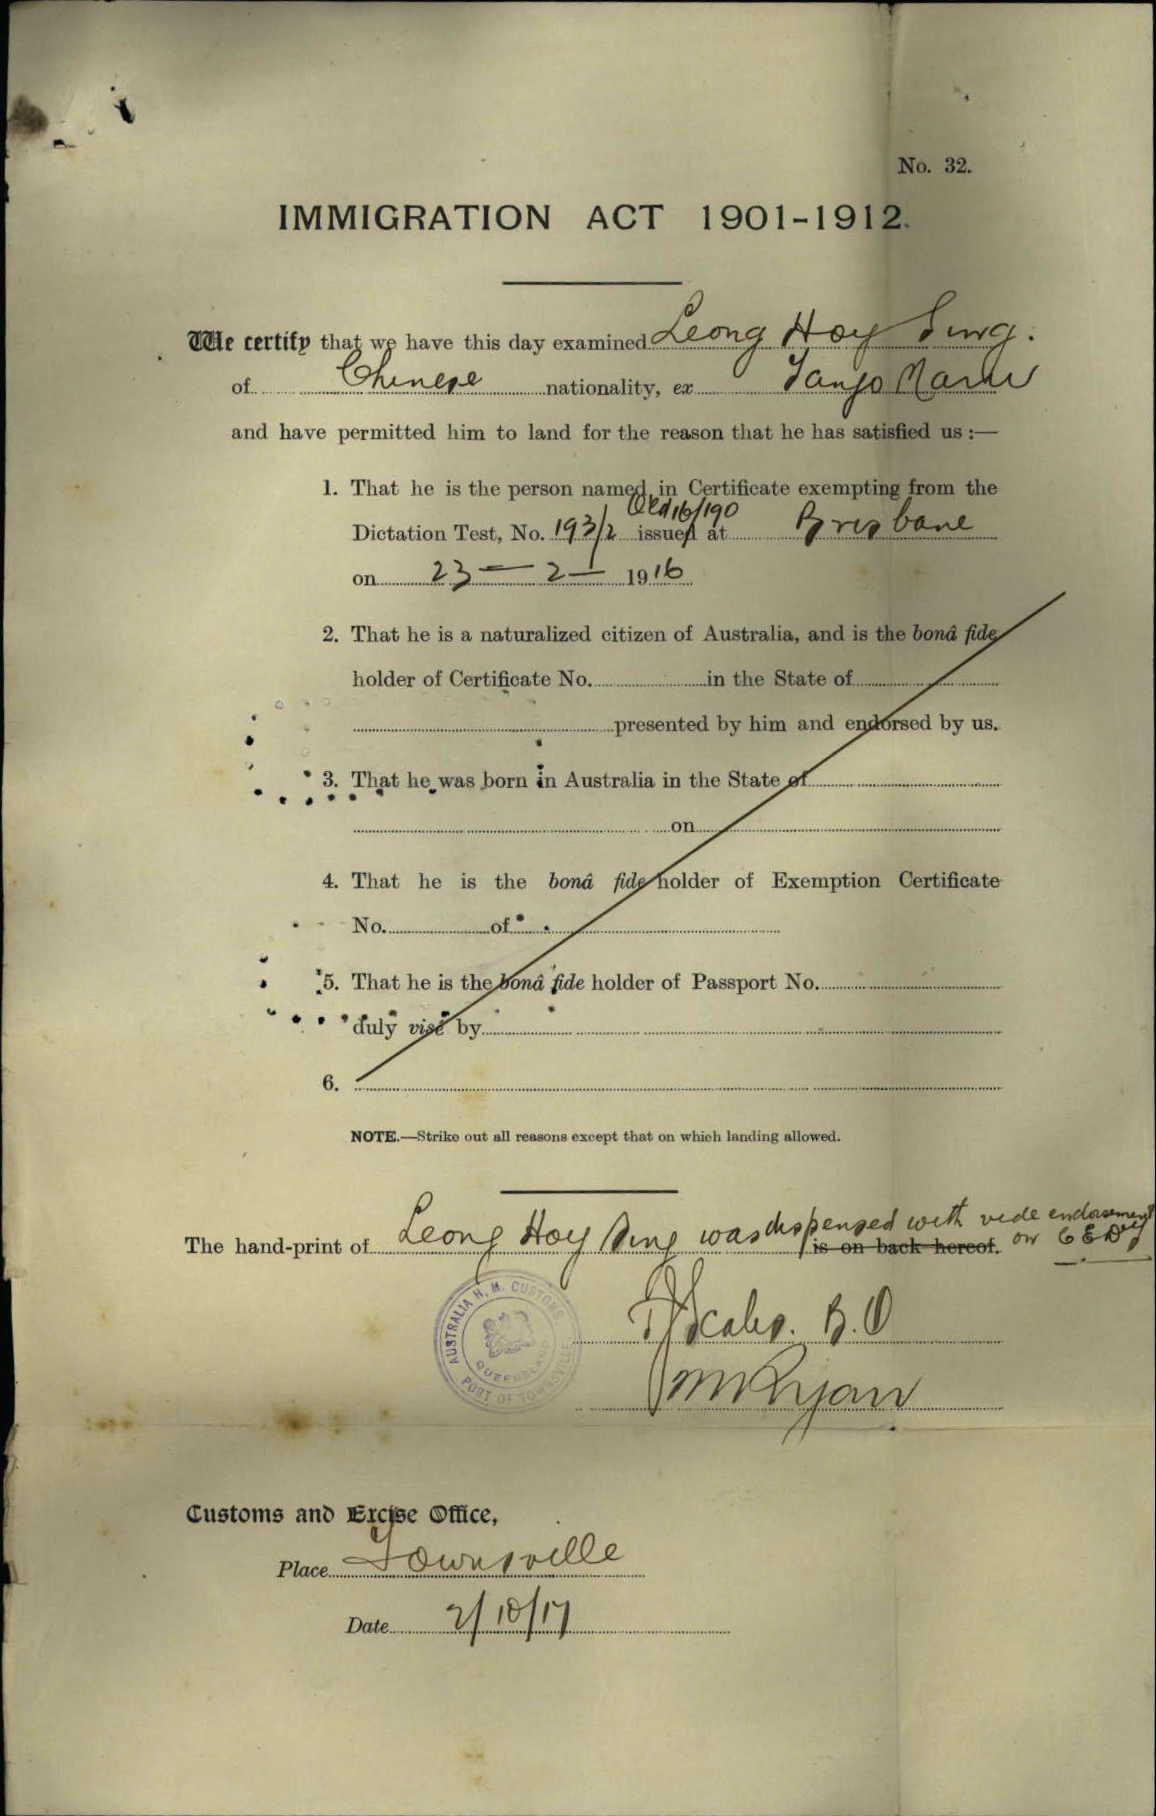 No. 32.
IMMIGRATION ACT 1901-1912.
We certify that we have this day examined Leong Hoy Sing.
of Chinese nationality, ex Tango Maru
and have permitted him to land for the reason that he has satisfied us :—
1. That he is the person named in Certificate exempting from the
Qld 16/190
Dictation Test, No. 193/2 issued at Brisbane
on 23 — 2 — 1916
2. That he is a naturalized citizen of Australia, and is the bonâ fide
holder of Certificate No. in the State of
presented by him and endorsed by us.
3. That he was born in Australia in the State of
on
4. That he is the bonâ fide holder of Exemption Certificate
No. of
5. That he is the bonâ fide holder of Passport No.
duly visé by
6.
NOTE.—Strike out all reasons except that on which landing allowed.
The hand-print of Leong Hoy Sing was dispensed with vide endorsement
is on back hereof. on CEDT
AUSTRALIA H. M. CUSTOMS
QUEENSLAND
PORT OF TOWNSVILLE
Scales. B.O
Ryan
Customs and Excise Office,
Place Townsville
Date 2/10/17